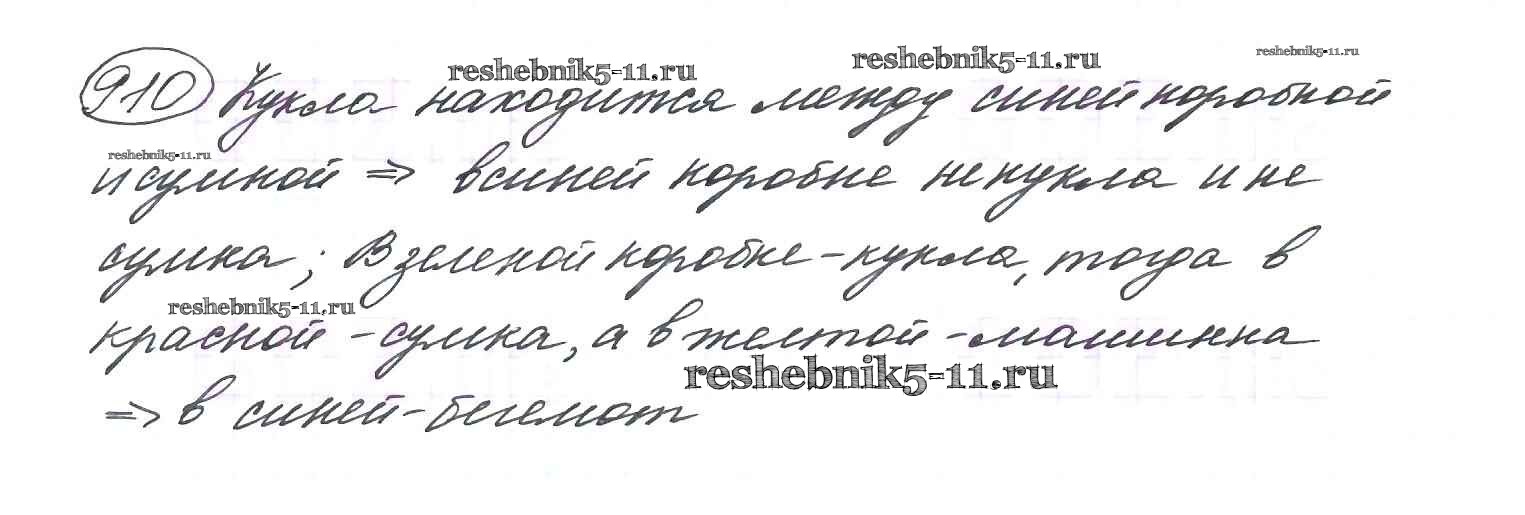 reshebnik5-11.ru
reshebnik5-11.ru
reshebnik5-11.ru
910 Кукла находится между синей коробкой
reshebnik5-11.ru
и сумкой => в синей коробке не кукла и не
сумка; В зеленой коробке - кукла, тогда в
reshebnik5-11.ru
красной - сумка, а в желтой - машинка
reshebnik5-11.ru
=> в синей - бегемот